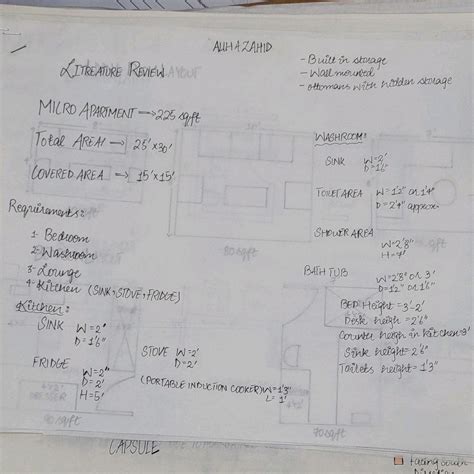 AliHA ZAHID
LITREATURE REVIEW
- Built in storage
- Wall mounted
- ottomans with hidden storage
MICRO APARTMENT → 225 sqft
TOTAL AREA → 25' x 30'
COVERED AREA → 15' x 15'
Requirements:
1- Bedroom
2- Washroom
3- Lounge
4- Kitchen (SINK, STOVE, FRIDGE)
Kitchen:
SINK W = 2"
D = 1'6"
FRIDGE W = 2"
D = 2'
H = 5'
STOVE W = 2'
D = 2'
(PORTABLE INDUCTION COOKER) W = 1'3"
L = 1'
WASHROOM:
SINK W = 2'
D = 1'6"
TOILET AREA W = 12" or 1'4"
D = 2'4" approx.
SHOWER AREA W = 2'8"
BATH TUB W = 2'8" or 3'
D = 12" or 1'6"
BED Height = 3'-2'
Desk heigh = 2'6"
Counter heigh in kitchen 3'
Sink height = 2'6"
Toilets height = 1'3"
80 sqft
90 sqft
70 sqft
CAPSULE
facing south